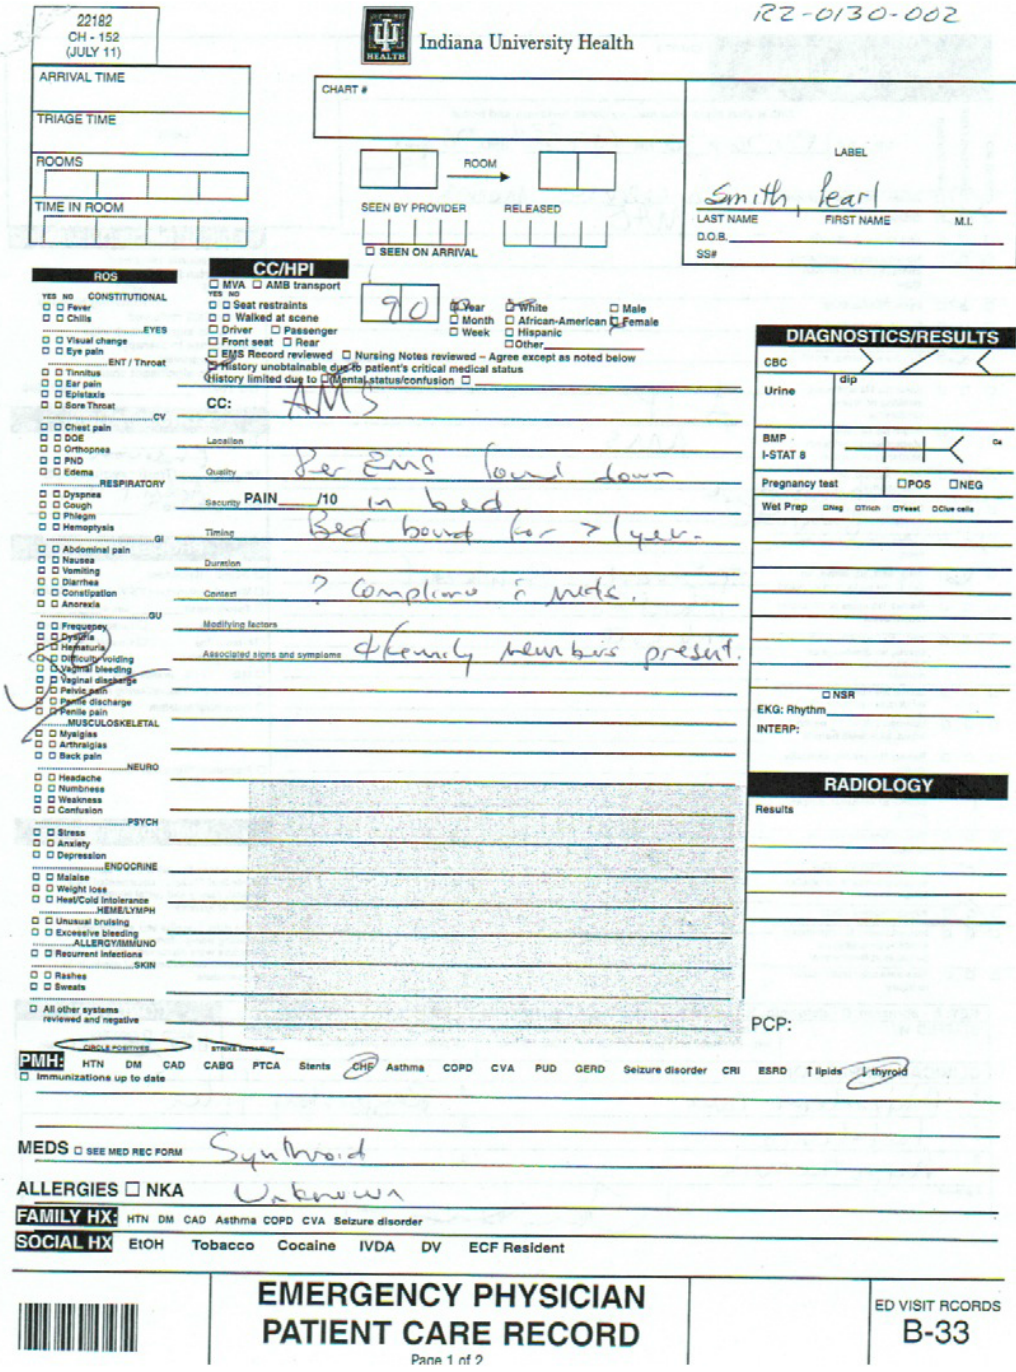 22182
CH - 152
(JULY 11)
Indiana University Health
R2-0130-002
ARRIVAL TIME
TRIAGE TIME
ROOMS
TIME IN ROOM
CHART #
ROOM
SEEN BY PROVIDER
RELEASED
SEEN ON ARRIVAL
LABEL
Smith, Pearl
LAST NAME FIRST NAME M.I.
D.O.B.
SS#
ROS
YES NO CONSTITUTIONAL
Fever
Chills
EYES
Visual change
Eye pain
ENT / Throat
Tinnitus
Ear pain
Epistaxis
Sore Throat
CV
Chest pain
DOE
Orthopnea
PND
Edema
RESPIRATORY
Dyspnea
Cough
Phlegm
Hemoptysis
GI
Abdominal pain
Nausea
Vomiting
Diarrhea
Constipation
Anorexia
GU
Frequency
Dysuria
Hematuria
Difficulty voiding
Vaginal bleeding
Vaginal discharge
Pelvic pain
Penile discharge
Penile pain
MUSCULOSKELETAL
Myalgias
Arthralgias
Back pain
NEURO
Headache
Numbness
Weakness
Confusion
PSYCH
Stress
Anxiety
Depression
ENDOCRINE
Malaise
Weight loss
Heat/Cold Intolerance
HEME/LYMPH
Unusual bruising
Excessive bleeding
ALLERGY/IMMUNO
Recurrent infections
SKIN
Rashes
Sweats
All other systems
reviewed and negative
CC/HPI
MVA AMB transport
YES NO
Seat restraints
Walked at scene
Driver Passenger
Front seat Rear
90
Year White Male
Month African-American Female
Week Hispanic
Other
EMS Record reviewed Nursing Notes reviewed – Agree except as noted below
History unobtainable due to patient's critical medical status
History limited due to Mental status/confusion
CC: AMS
Location
Quality Per EMS found down
Security PAIN /10 in bed
Timing Bed bound for > 1 year.
Duration
Context ? Compliance c̄ meds.
Modifying factors
Associated signs and symptoms family members present.
DIAGNOSTICS/RESULTS
CBC
Urine dip
BMP
I-STAT 8 Ca
Pregnancy test POS NEG
Wet Prep Neg Trich Yeast Clue cells
NSR
EKG: Rhythm
INTERP:
RADIOLOGY
Results
PCP:
CIRCLE POSITIVES STRIKE NEGATIVE
PMH: HTN DM CAD CABG PTCA Stents CHF Asthma COPD CVA PUD GERD Seizure disorder CRI ESRD ↑ lipids ↓ thyroid
Immunizations up to date
MEDS SEE MED REC FORM Synthroid
ALLERGIES NKA Unknown
FAMILY HX: HTN DM CAD Asthma COPD CVA Seizure disorder
SOCIAL HX EtOH Tobacco Cocaine IVDA DV ECF Resident
EMERGENCY PHYSICIAN
PATIENT CARE RECORD
Page 1 of 2
ED VISIT RCORDS
B-33